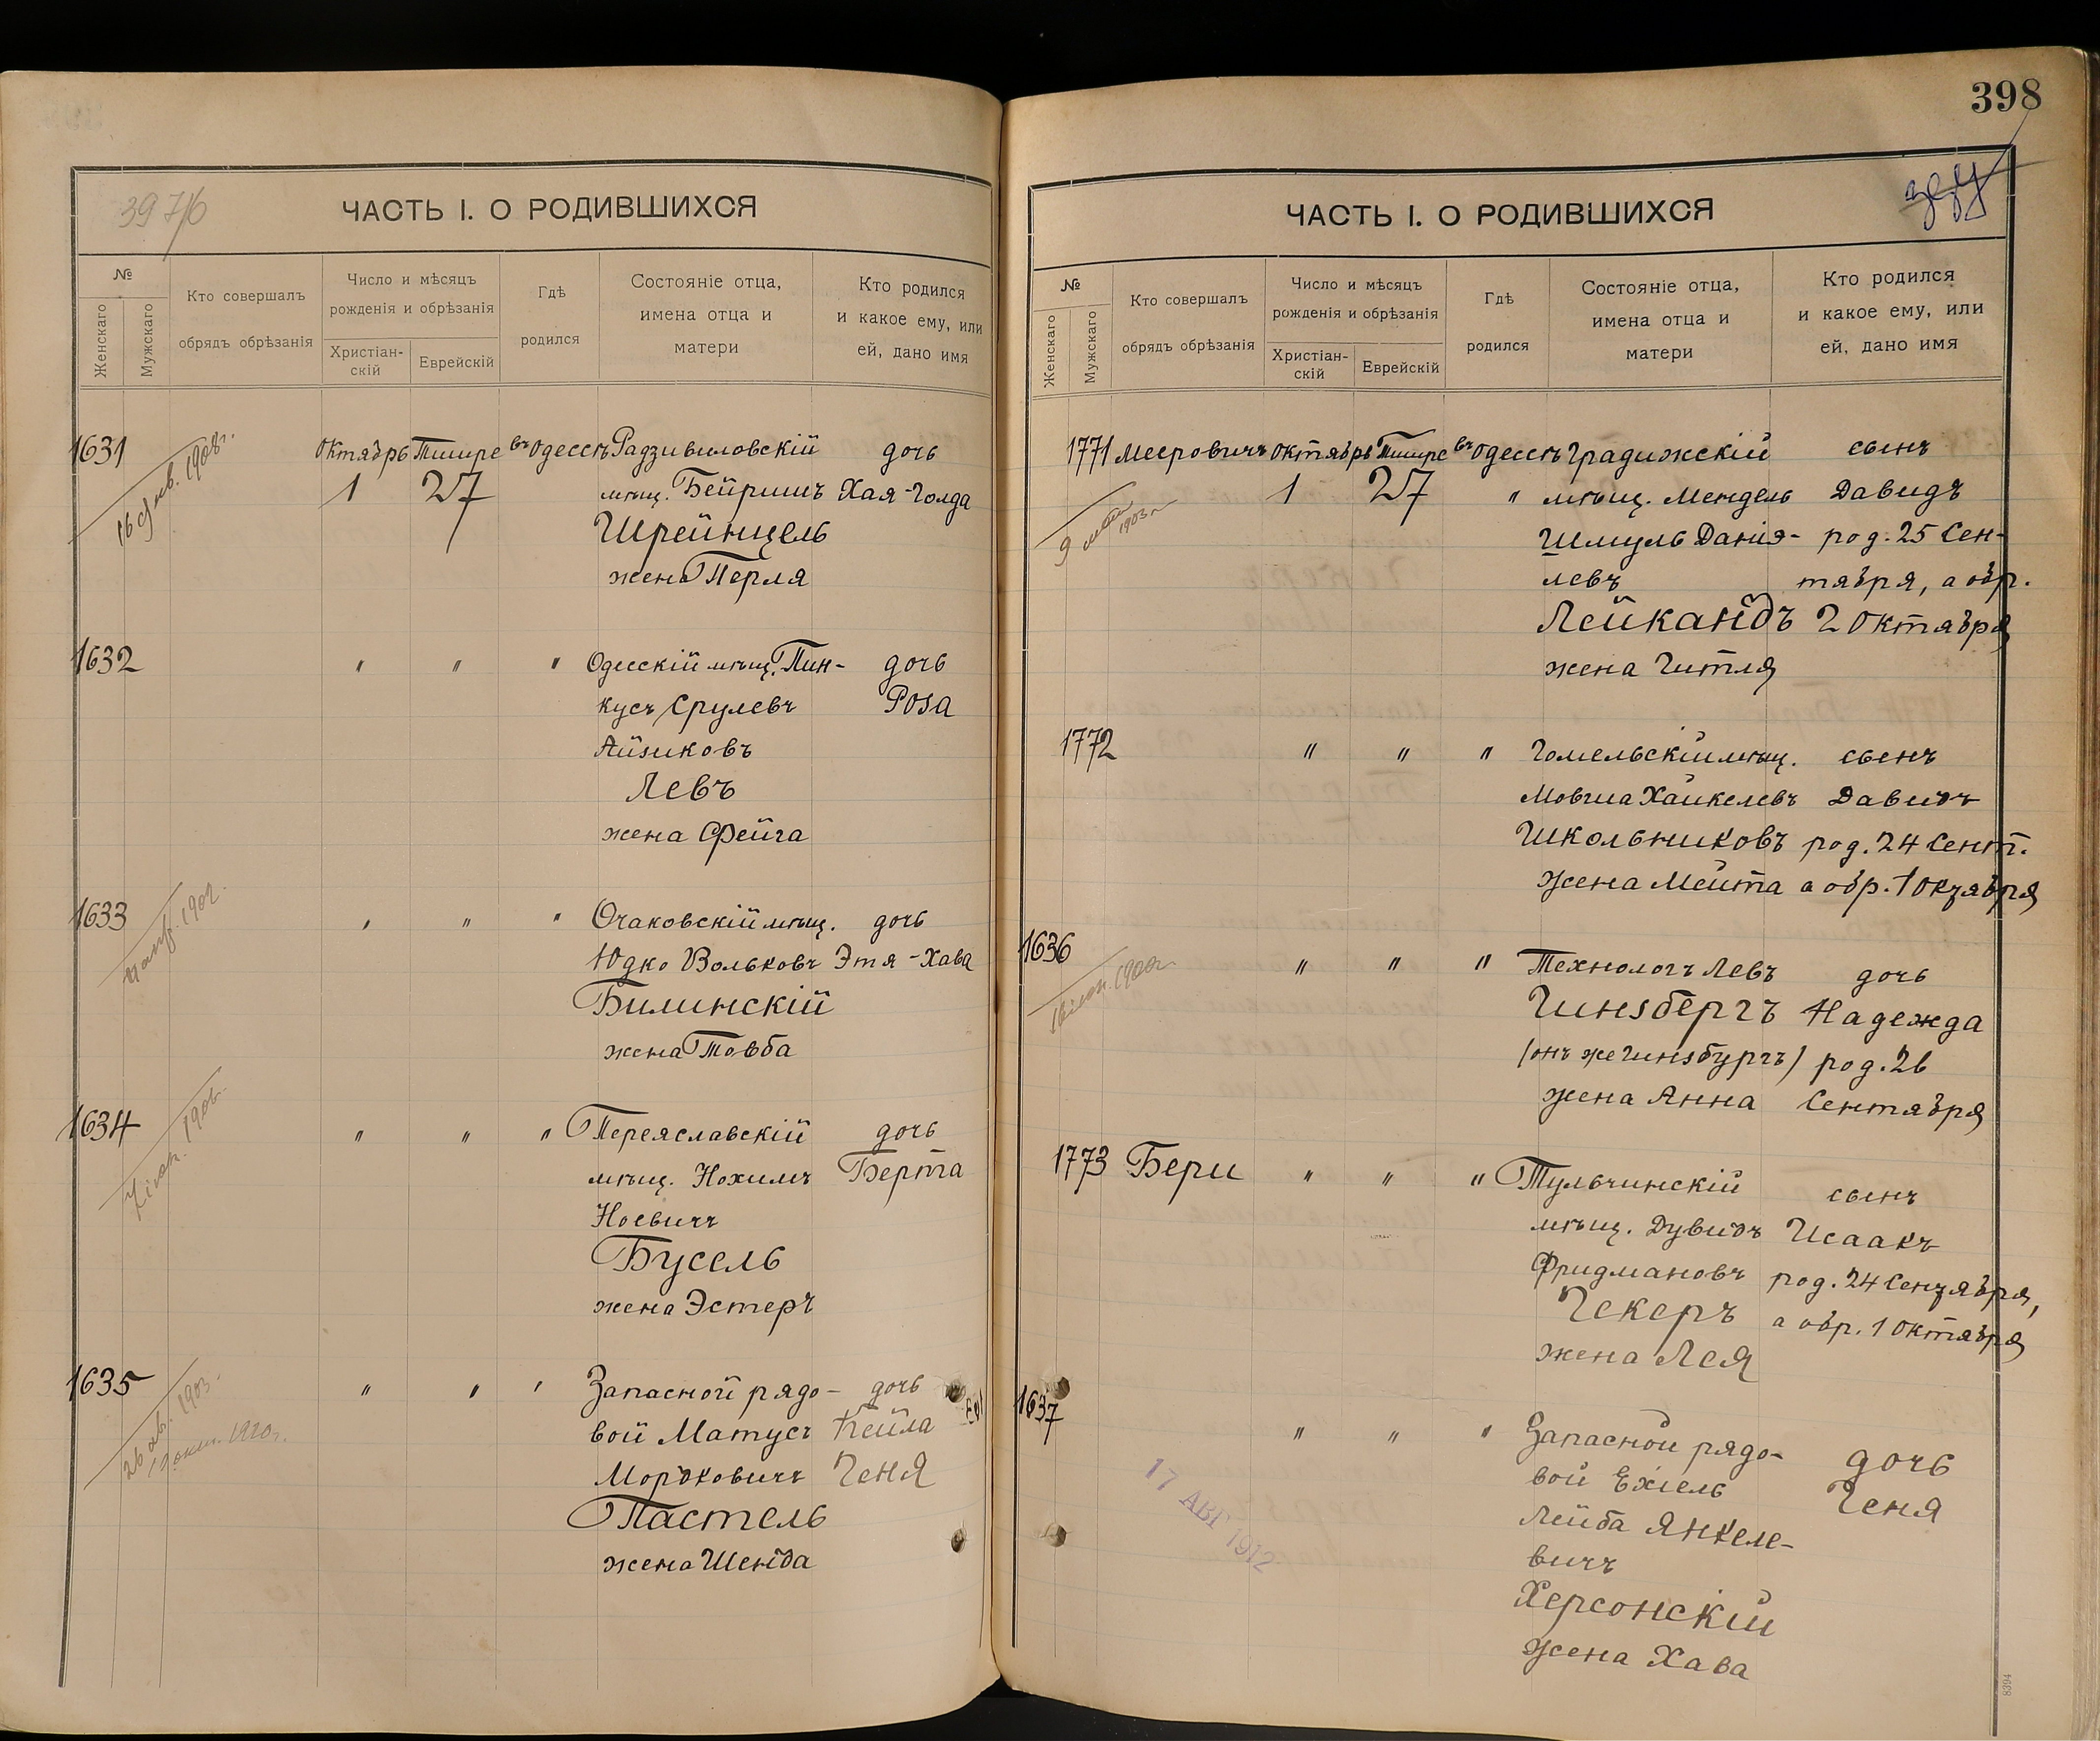 398
ЧАСТЬ I. О РОДИВШИХСЯ
№
Женскаго
Мужскаго
Кто совершалъ
обрядъ обрѣзанія
Число и мѣсяцъ
рожденія и обрѣзанія
Христіан-
скій
Еврейскій
Гдѣ
родился
Состояніе отца,
имена отца и
матери
Кто родился
и какое ему, или
ей, дано имя
1631 Октябрь Тишре въ Одессѣ Радзивиловскій дочь
1 27 мѣщ. Бейришъ Хая-Голда
Шрейнцель
жена Перля
1632 " " " Одесскій мѣщ. Пин- дочь
кусъ Срулевъ Роза
Айзиковъ
Левъ
жена Фейга
1633 " " " Очаковскій мѣщ. дочь
Юдко Вольковъ Этя-Хава
Билинскій
жена Товба
1634 " " " Переяславскій дочь
мѣщ. Нохимъ Берта
Ноевичъ
Бусель
жена Эстеръ
1635 " " " Запасной рядо- дочь
вой Матусъ Кейла
Мордковичъ Геня
Пастель
жена Шейда
ЧАСТЬ I. О РОДИВШИХСЯ
№
Женскаго
Мужскаго
Кто совершалъ
обрядъ обрѣзанія
Число и мѣсяцъ
рожденія и обрѣзанія
Христіан-
скій
Еврейскій
Гдѣ
родился
Состояніе отца,
имена отца и
матери
Кто родился
и какое ему, или
ей, дано имя
1771 Мееровичъ Октябрь Тишре въ Одессѣ Градижскій сынъ
1 27 " мѣщ. Мендель Давидъ
Шмуль Данiя- род. 25 Сен-
левъ тября, а обр.
Лейкандъ 2 Октября
жена Гитля
1772 " " " Гомельскій мѣщ. сынъ
Мовша Хайкелевъ Давидъ
Школьниковъ род. 24 Сент.
жена Мейта а обр. 1 Октября
1636 " " " Технологъ Левъ дочь
Гинзбергъ Надежда
(онъ же Гинзбургъ) род. 26
жена Анна Сентября
1773 Бери " " " Тульчинскій сынъ
мѣщ. Дувидъ Исаакъ
Фридмановъ род. 24 Сентября,
Чекеръ а обр. 1 Октября
жена Лея
1637 " " " Запасной рядо- дочь
вой Ехіель Геня
Лейба Янкеле-
вичъ
Херсонскій
жена Хава
17 АВГ 1912
8394